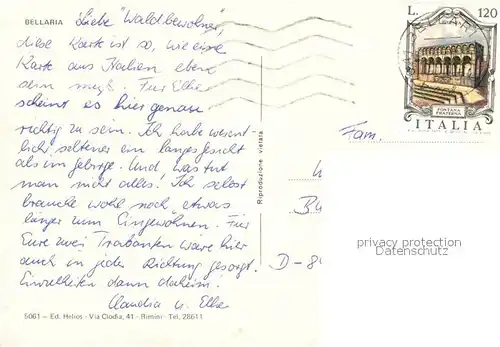 BELLARIA
Liebe "Waldbewohner",
diese Karte ist so, wie eine
Karte aus Italien eben
sein muß. Für Elke
scheint es hier genau
richtig zu sein. Ich habe wesent-
lich seltener ein langes Gesicht
als im Gebirge. Und was tut
man nicht alles! Ich selbst
brauche wohl noch etwas
länger zum Eingewöhnen. Für
Eure zwei Trabanten wäre hier
auch in jeder Richtung gesorgt.
Einzelheiten dann daheim!
Claudia u. Elke
5061 - Ed. Helios - Via Clodia, 41 - Rimini - Tel. 28611
Riproduzione vietata
L. 120
FONTANA
FRATERNA
ITALIA
Fam.
D-8
privacy protection
Datenschutz